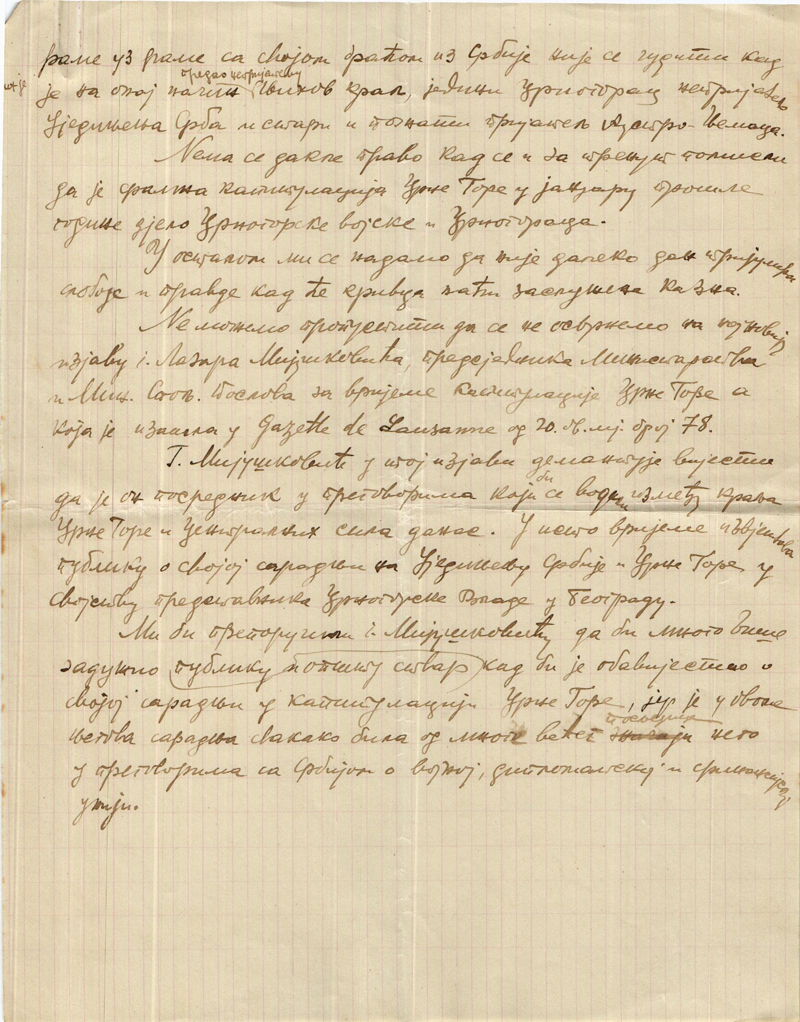 раме уз раме са својом браћом из Србије није се чудити кад
је на онај начин предао непријатељу њихов краљ, једини Црногорац непријатељ
Уједињења Срба и стари и познати пријатељ Аустро-Њемаца.
Нема се дакле право кад се и за тренут помисли
да је фамозна капитулација Црне Горе у јануару прошле
године дјело Црногорске војске и Црногораца.
У осталом ми се надамо да није далеко дан тријумфа
слободе и правде кад ће кривца наћи заслужена казна.
Не можемо пропустити да се не осврнемо на најновију
изјаву г. Лазара Мијушковића, предсједника Министарства
и Мин. Спољ. Послова за вријеме капитулације Црне Горе а
која је изашла у Gazette de Lausanne од 20. ов. мј. број 78.
Г. Мијушковић у тој изјави демантује вијести
да је он посредник у преговорима који би се водили између краља
Црне Горе и Централних сила данас. У исто вријеме извјештава
публику о својој сарадњи на Уједињењу Србије и Црне Горе, у
својству представника Црногорске Владе у Београду.
Ми би препоручили г. Мијушковићу да би много више
задужио публику и општу ствар кад би је обавијестио о
својој сарадњи у капитулацији Црне Горе, јер је у овоме
његова сарадња свакако била од много већег значаја него
у преговорима са Србијом о војној, дипломатској и финансијској
унији.